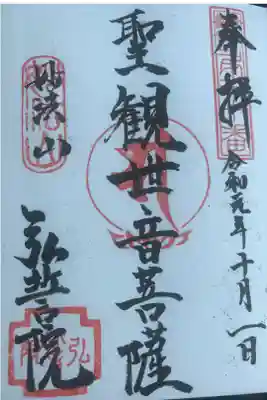 奉拝
令和元年十月一日
聖観世音菩薩
妙法山
弘誓院